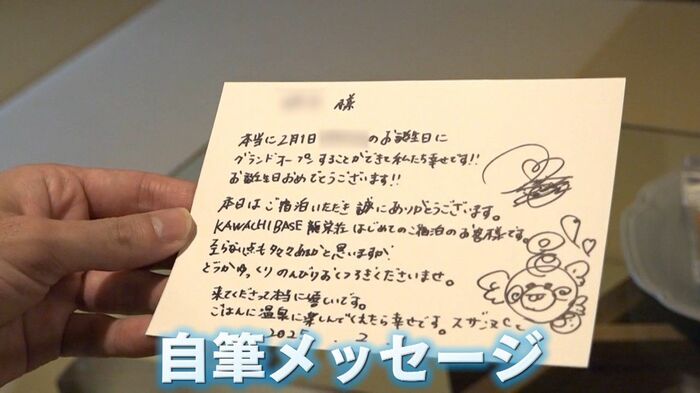 様
本当に2月1日 のお誕生日に
グランドオープンすることができて私たち幸せです!!
お誕生日おめでとうございます!!
本日はご宿泊いただき誠にありがとうございます。
KAWACHI BASE 龍栄荘はじめてのご宿泊のお客様です。
至らない点も多々あるかと思いますが、
どうかゆっくりのんびりおくつろぎくださいませ。
来てくださって本当に嬉しいです。
ごはんに温泉に楽しんでくれたら幸せです。スザンヌ
2025 2
自筆メッセージ